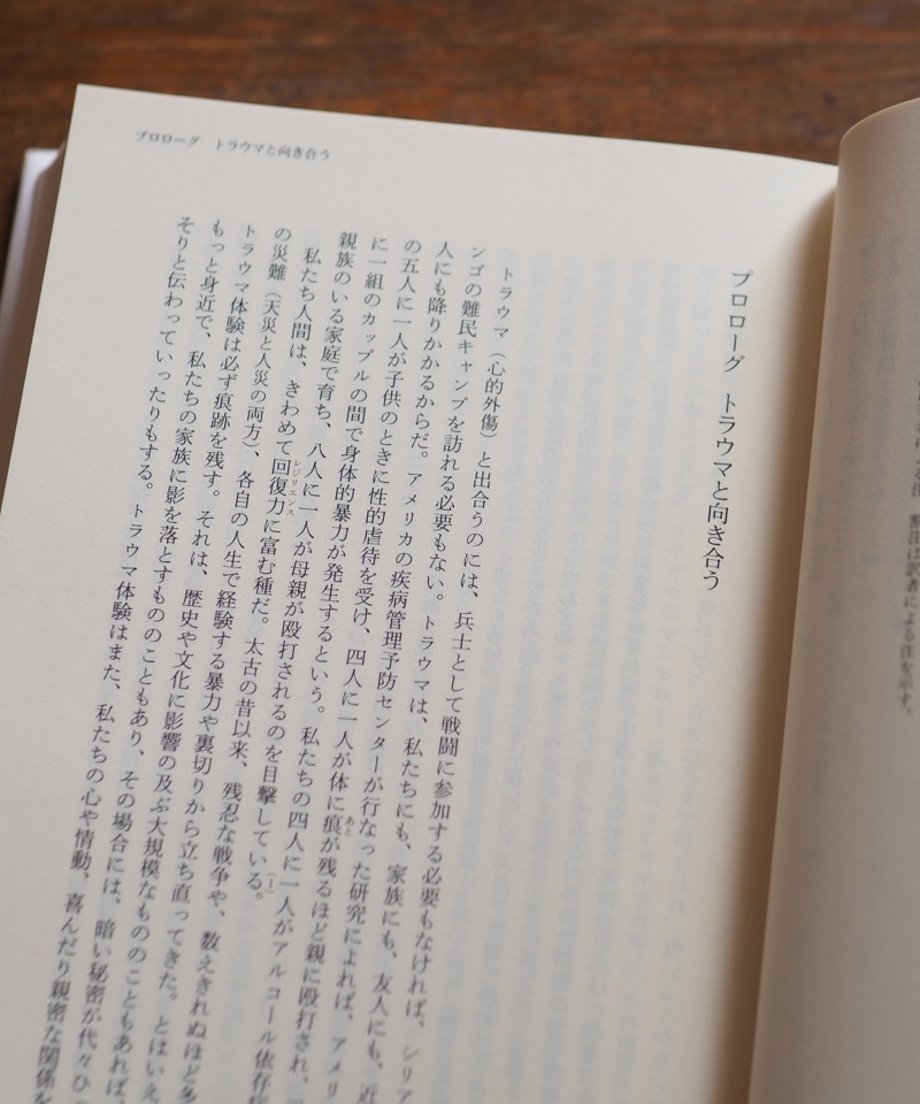 プロローグ　トラウマと向き合う
プロローグ　トラウマと向き合う
トラウマ（心的外傷）と出合うのには、兵士として戦闘に参加する必要もなければ、シリア
ンゴの難民キャンプを訪れる必要もない。トラウマは、私たちにも、家族にも、友人にも、近
人にも降りかかるからだ。アメリカの疾病管理予防センターが行なった研究によれば、アメリ
の五人に一人が子供のときに性的虐待を受け、四人に一人が体に痕あとが残るほど親に殴打され、
に一組のカップルの間で身体的暴力が発生するという。私たちの四人に一人がアルコール依存
親族のいる家庭で育ち、八人に一人が母親が殴打されるのを目撃している。（1）
私たち人間は、きわめて回復力レジリエンスに富む種だ。太古の昔以来、残忍な戦争や、数えきれぬほど多
の災難（天災と人災の両方）、各自の人生で経験する暴力や裏切りから立ち直ってきた。とはいえ
トラウマ体験は必ず痕跡を残す。それは、歴史や文化に影響の及ぶ大規模なもののこともあれば
もっと身近で、私たちの家族に影を落とすもののこともあり、その場合には、暗い秘密が代々ひ
そりと伝わっていったりもする。トラウマ体験はまた、私たちの心や情動、喜んだり親密な関係を